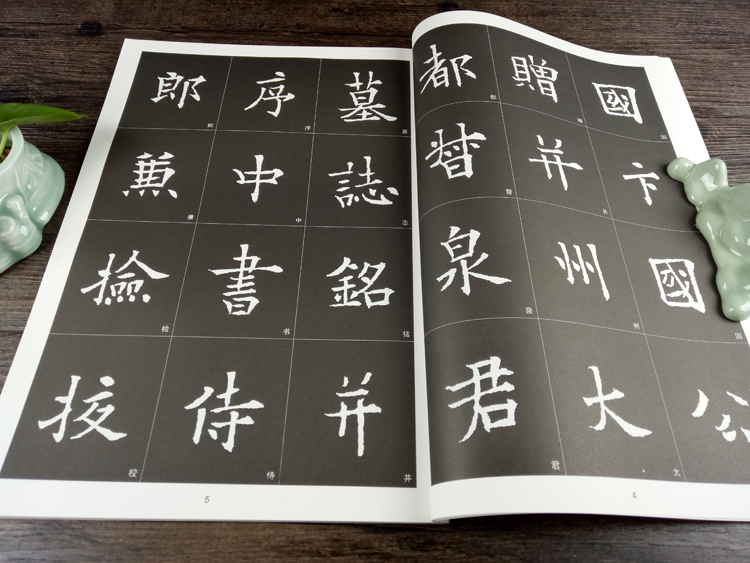 國卞國公
国国
贈并州大
赠并州大
都督泉君
都督泉君
4
墓誌銘并
墓志铭并
序中書侍
序中书侍
郎兼撿挍
郎兼检校
5